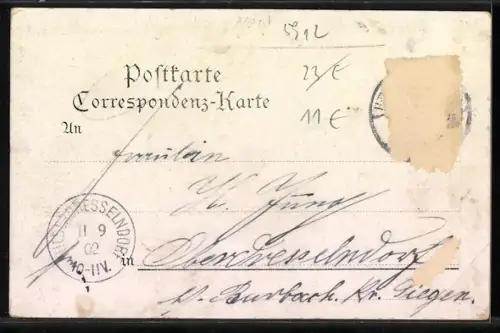 5912
Postkarte
23/€
Correspondenz-Karte
11€
An
Fräulein
H. Jung
in Oberdresselndorf
b. Burbach. Kr. Siegen.
DRESSELNDORF
11 9
02
10-11V.